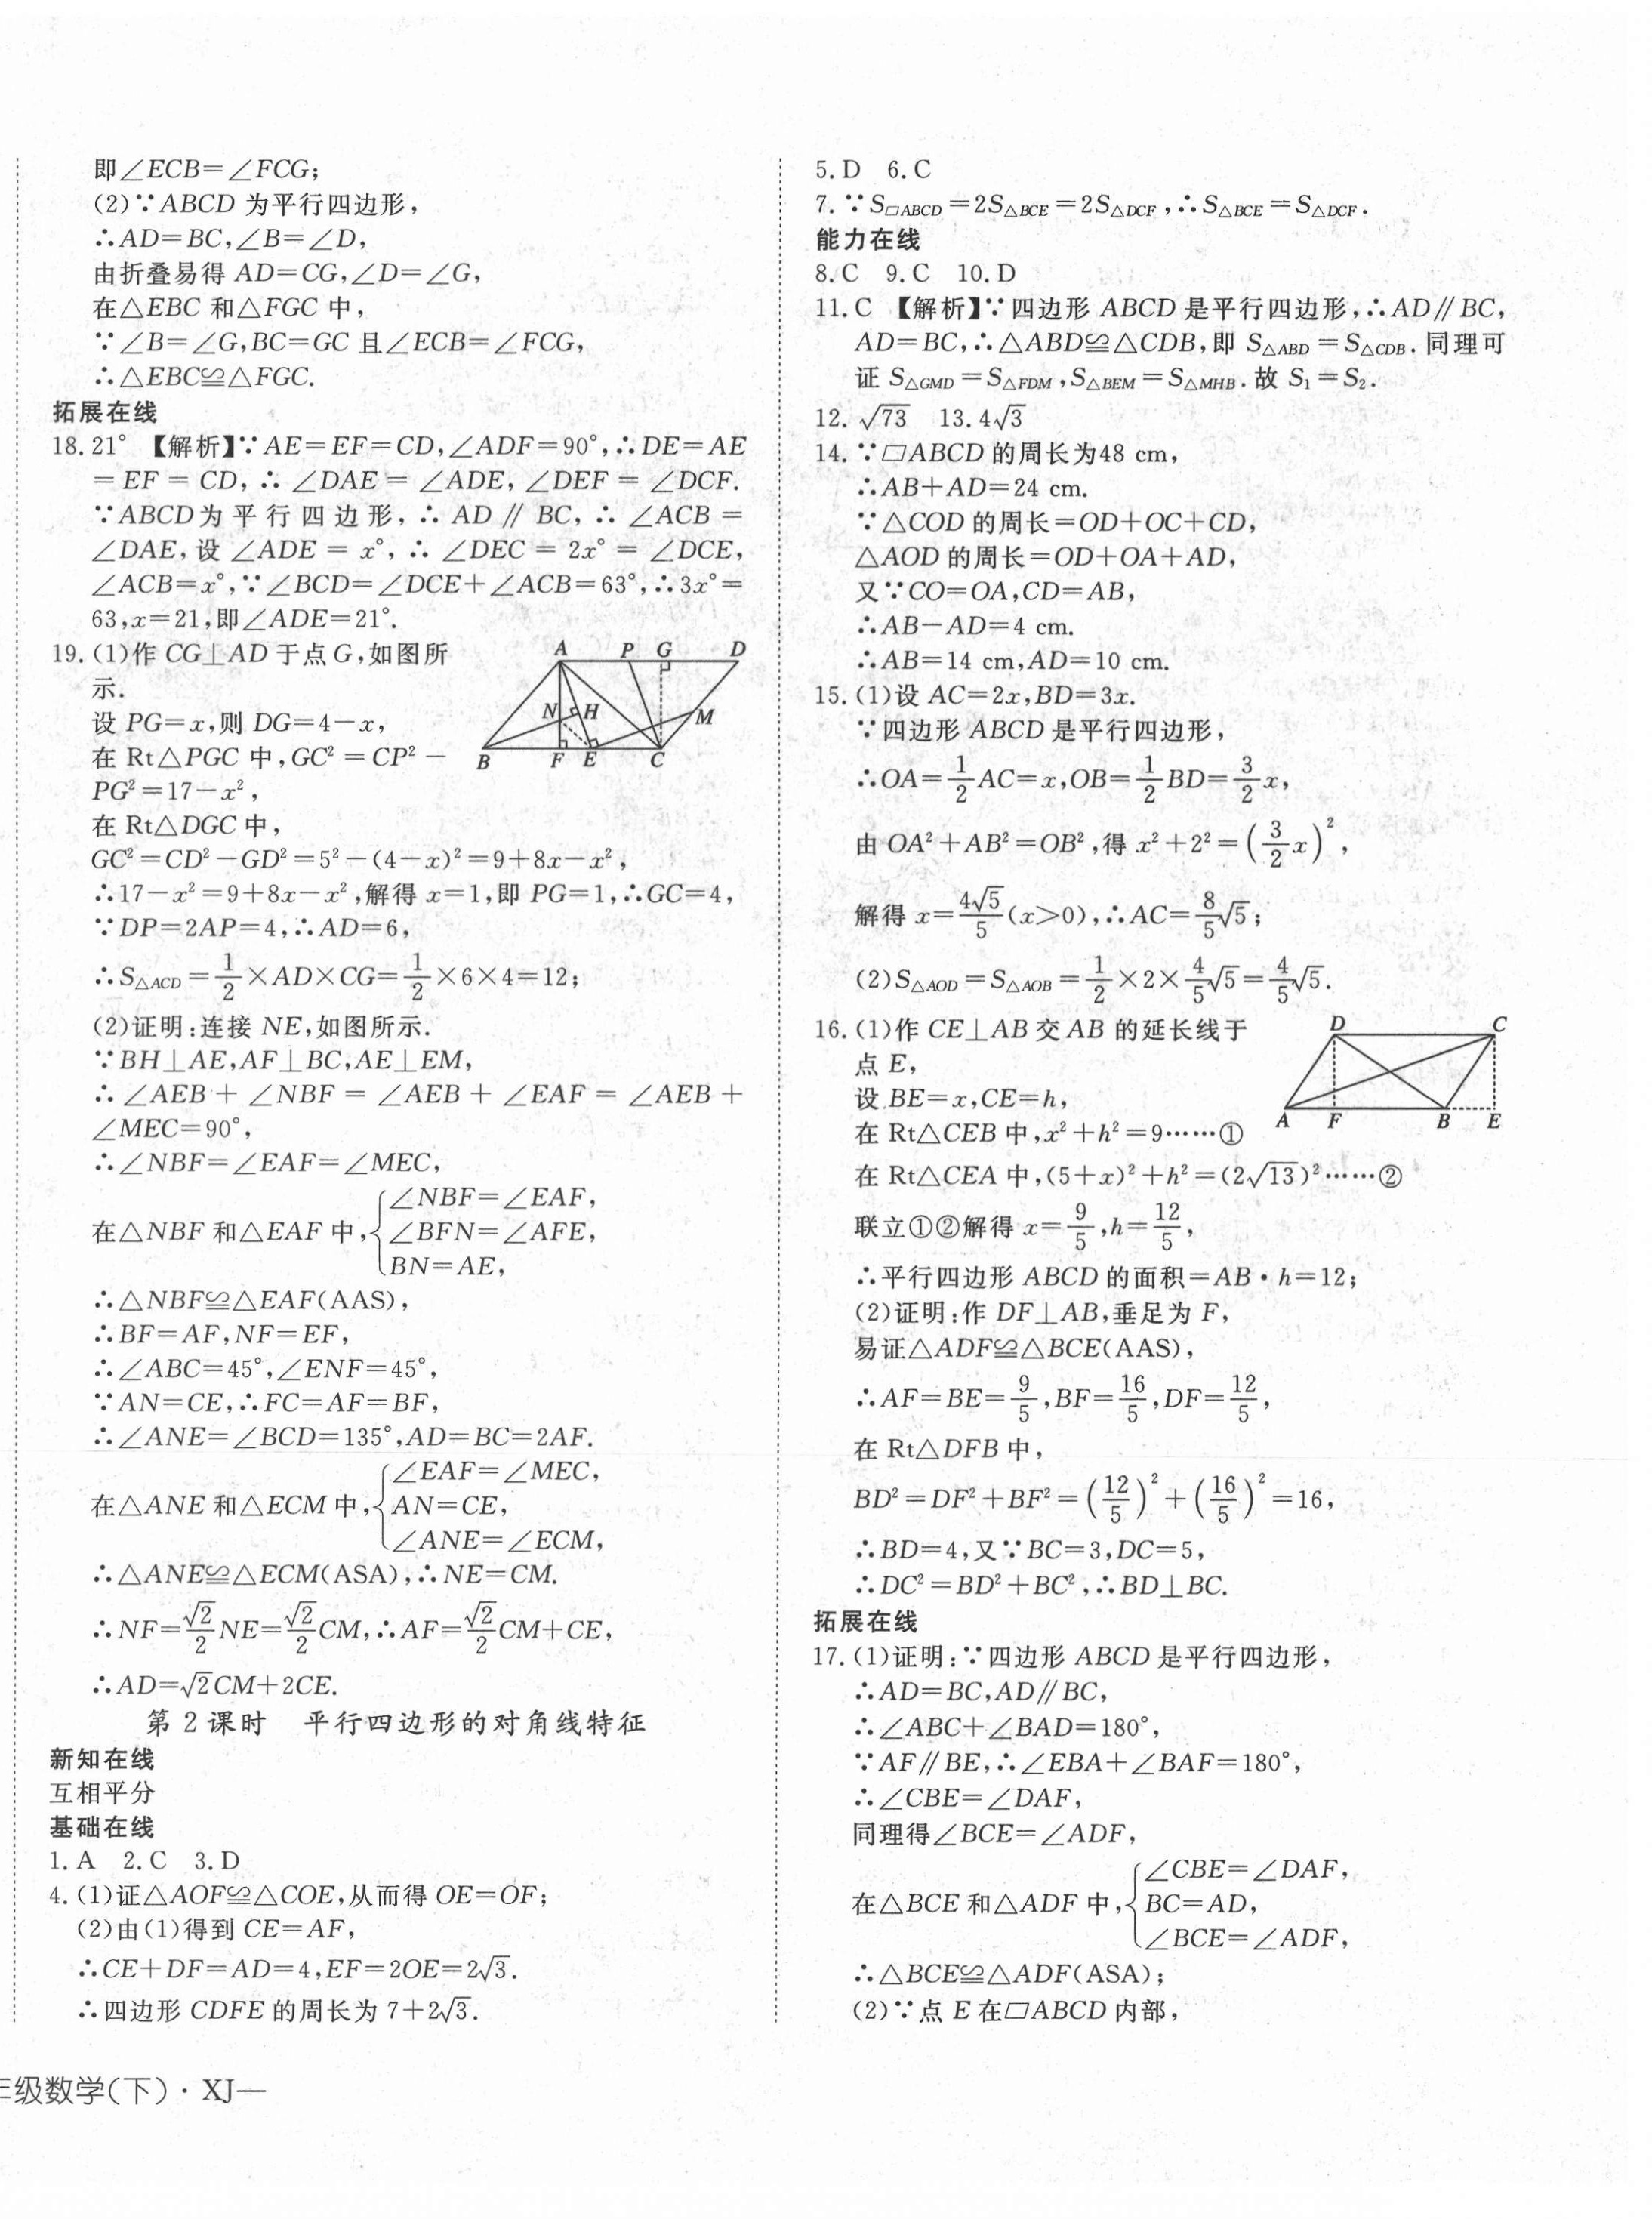 即∠ECB=∠FCG;
(2)∵ABCD 为平行四边形,
∴AD=BC,∠B=∠D,
由折叠易得 AD=CG,∠D=∠G,
在△EBC 和△FGC 中,
∵∠B=∠G,BC=GC 且∠ECB=∠FCG,
∴△EBC≌△FGC.
拓展在线
18.21° 【解析】∵AE=EF=CD,∠ADF=90°,∴DE=AE
=EF=CD,∴∠DAE=∠ADE,∠DEF=∠DCF.
∵ABCD为平行四边形,∴AD∥BC,∴∠ACB=
∠DAE,设∠ADE=x°,∴∠DEC=2x°=∠DCE,
∠ACB=x°,∵∠BCD=∠DCE+∠ACB=63°,∴3x°=
63,x=21,即∠ADE=21°.
19.(1)作 CG⊥AD 于点G,如图所
示.
设 PG=x,则 DG=4-x,
在 Rt△PGC 中,GC²=CP²-
PG²=17-x²,
A P G D
N H M
B F E C
在 Rt△DGC 中,
GC²=CD²-GD²=5²-(4-x)²=9+8x-x²,
∴17-x²=9+8x-x²,解得 x=1,即 PG=1,∴GC=4,
∵DP=2AP=4,∴AD=6,
∴S△ACD=1/2×AD×CG=1/2×6×4=12;
(2)证明:连接 NE,如图所示.
∵BH⊥AE,AF⊥BC,AE⊥EM,
∴∠AEB+∠NBF=∠AEB+∠EAF=∠AEB+
∠MEC=90°,
∴∠NBF=∠EAF=∠MEC,
在△NBF 和△EAF 中,{∠NBF=∠EAF,
∠BFN=∠AFE,
BN=AE,
∴△NBF≌△EAF(AAS),
∴BF=AF,NF=EF,
∴∠ABC=45°,∠ENF=45°,
∵AN=CE,∴FC=AF=BF,
∴∠ANE=∠BCD=135°,AD=BC=2AF.
在△ANE 和△ECM 中,{∠EAF=∠MEC,
AN=CE,
∠ANE=∠ECM,
∴△ANE≌△ECM(ASA),∴NE=CM.
∴NF=√2/2NE=√2/2CM,∴AF=√2/2CM+CE,
∴AD=√2CM+2CE.
第 2 课时 平行四边形的对角线特征
新知在线
互相平分
基础在线
1.A 2.C 3.D
4.(1)证△AOF≌△COE,从而得 OE=OF;
(2)由(1)得到 CE=AF,
∴CE+DF=AD=4,EF=2OE=2√3.
∴四边形 CDFE 的周长为 7+2√3.
5.D 6.C
7.∵S▱ABCD=2S△BCE=2S△DCF,∴S△BCE=S△DCF.
能力在线
8.C 9.C 10.D
11.C 【解析】∵四边形 ABCD 是平行四边形,∴AD∥BC,
AD=BC,∴△ABD≌△CDB,即 S△ABD=S△CDB.同理可
证 S△GMD=S△FDM,S△BEM=S△MHB.故 S₁=S₂.
12.√73 13.4√3
14.∵▱ABCD 的周长为48 cm,
∴AB+AD=24 cm.
∵△COD 的周长=OD+OC+CD,
△AOD 的周长=OD+OA+AD,
又∵CO=OA,CD=AB,
∴AB-AD=4 cm.
∴AB=14 cm,AD=10 cm.
15.(1)设 AC=2x,BD=3x.
∵四边形 ABCD 是平行四边形,
∴OA=1/2AC=x,OB=1/2BD=3/2x,
由 OA²+AB²=OB²,得 x²+2²=(3/2x)²,
解得 x=4√5/5(x>0),∴AC=8/5√5;
(2)S△AOD=S△AOB=1/2×2×4/5√5=4/5√5.
16.(1)作 CE⊥AB 交 AB 的延长线于
点 E,
设 BE=x,CE=h,
在 Rt△CEB 中,x²+h²=9……①
D C
A F B E
在 Rt△CEA 中,(5+x)²+h²=(2√13)²……②
联立①②解得 x=9/5,h=12/5,
∴平行四边形 ABCD 的面积=AB·h=12;
(2)证明:作 DF⊥AB,垂足为 F,
易证△ADF≌△BCE(AAS),
∴AF=BE=9/5,BF=16/5,DF=12/5,
在 Rt△DFB 中,
BD²=DF²+BF²=(12/5)²+(16/5)²=16,
∴BD=4,又∵BC=3,DC=5,
∴DC²=BD²+BC²,∴BD⊥BC.
拓展在线
17.(1)证明:∵四边形 ABCD 是平行四边形,
∴AD=BC,AD∥BC,
∴∠ABC+∠BAD=180°,
∵AF∥BE,∴∠EBA+∠BAF=180°,
∴∠CBE=∠DAF,
同理得∠BCE=∠ADF,
在△BCE 和△ADF 中,{∠CBE=∠DAF,
BC=AD,
∠BCE=∠ADF,
∴△BCE≌△ADF(ASA);
(2)∵点 E 在▱ABCD 内部,
级数学(下)·XJ—